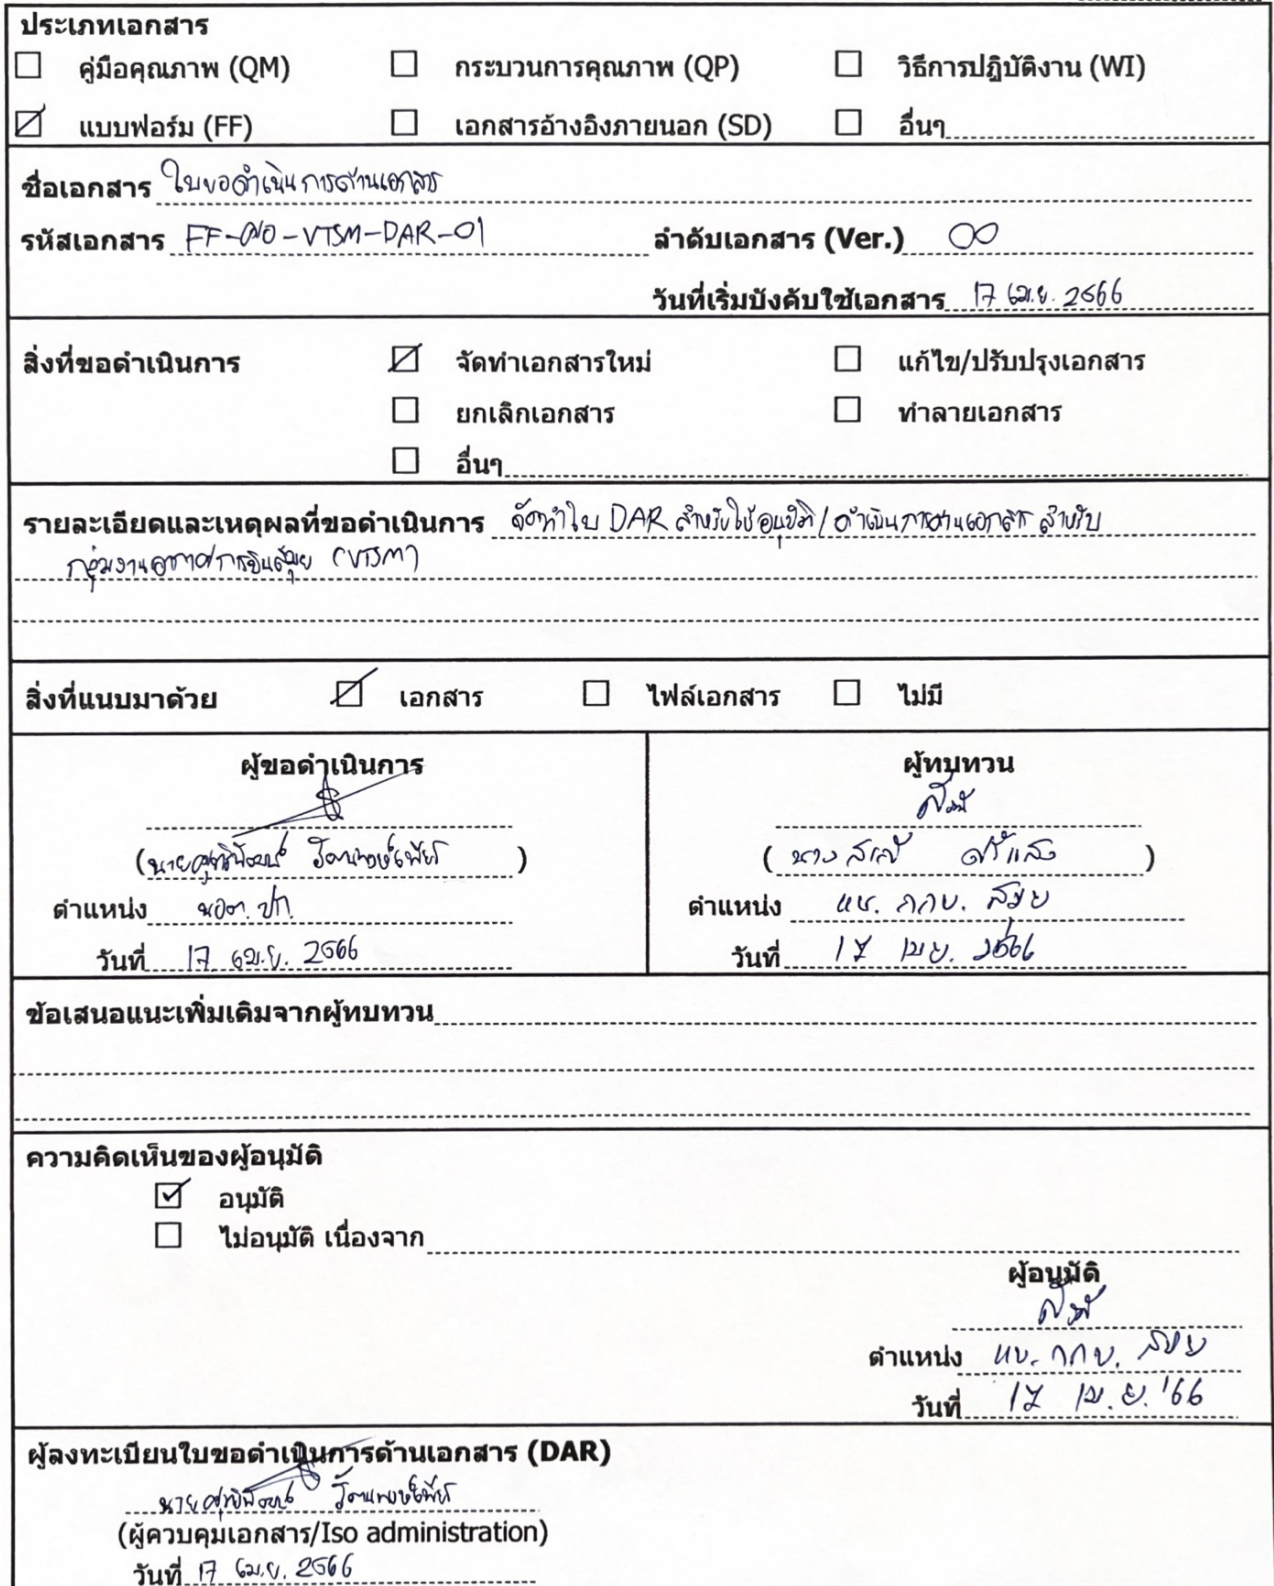 ประเภทเอกสาร
คู่มือคุณภาพ (QM) กระบวนการคุณภาพ (QP) วิธีการปฏิบัติงาน (WI)
แบบฟอร์ม (FF) เอกสารอ้างอิงภายนอก (SD) อื่นๆ
ชื่อเอกสาร ใบขอดำเนินการด้านเอกสาร
รหัสเอกสาร FF-ศอ-VTSM-DAR-01 ลำดับเอกสาร (Ver.) 00
วันที่เริ่มบังคับใช้เอกสาร 17 เม.ย. 2566
สิ่งที่ขอดำเนินการ จัดทำเอกสารใหม่ แก้ไข/ปรับปรุงเอกสาร
ยกเลิกเอกสาร ทำลายเอกสาร
อื่นๆ
รายละเอียดและเหตุผลที่ขอดำเนินการ จัดทำใบ DAR สำหรับใช้อนุมัติ/ดำเนินการด้านเอกสาร สำหรับ
กลุ่มงานอากาศการบินสุวย (VTSM)
สิ่งที่แนบมาด้วย เอกสาร ไฟล์เอกสาร ไม่มี
ผู้ขอดำเนินการ ผู้ทบทวน
(นาย ) (นาง )
ตำแหน่ง นอต.ปก. ตำแหน่ง กกบ. สมย
วันที่ 17 เม.ย. 2566 วันที่ 17 เมย. 2566
ข้อเสนอแนะเพิ่มเติมจากผู้ทบทวน
ความคิดเห็นของผู้อนุมัติ
อนุมัติ
ไม่อนุมัติ เนื่องจาก
ผู้อนุมัติ
ตำแหน่ง กกบ. สมย
วันที่ 17 เม.ย. '66
ผู้ลงทะเบียนใบขอดำเนินการด้านเอกสาร (DAR)
นาย
(ผู้ควบคุมเอกสาร/Iso administration)
วันที่ 17 เม.ย. 2566